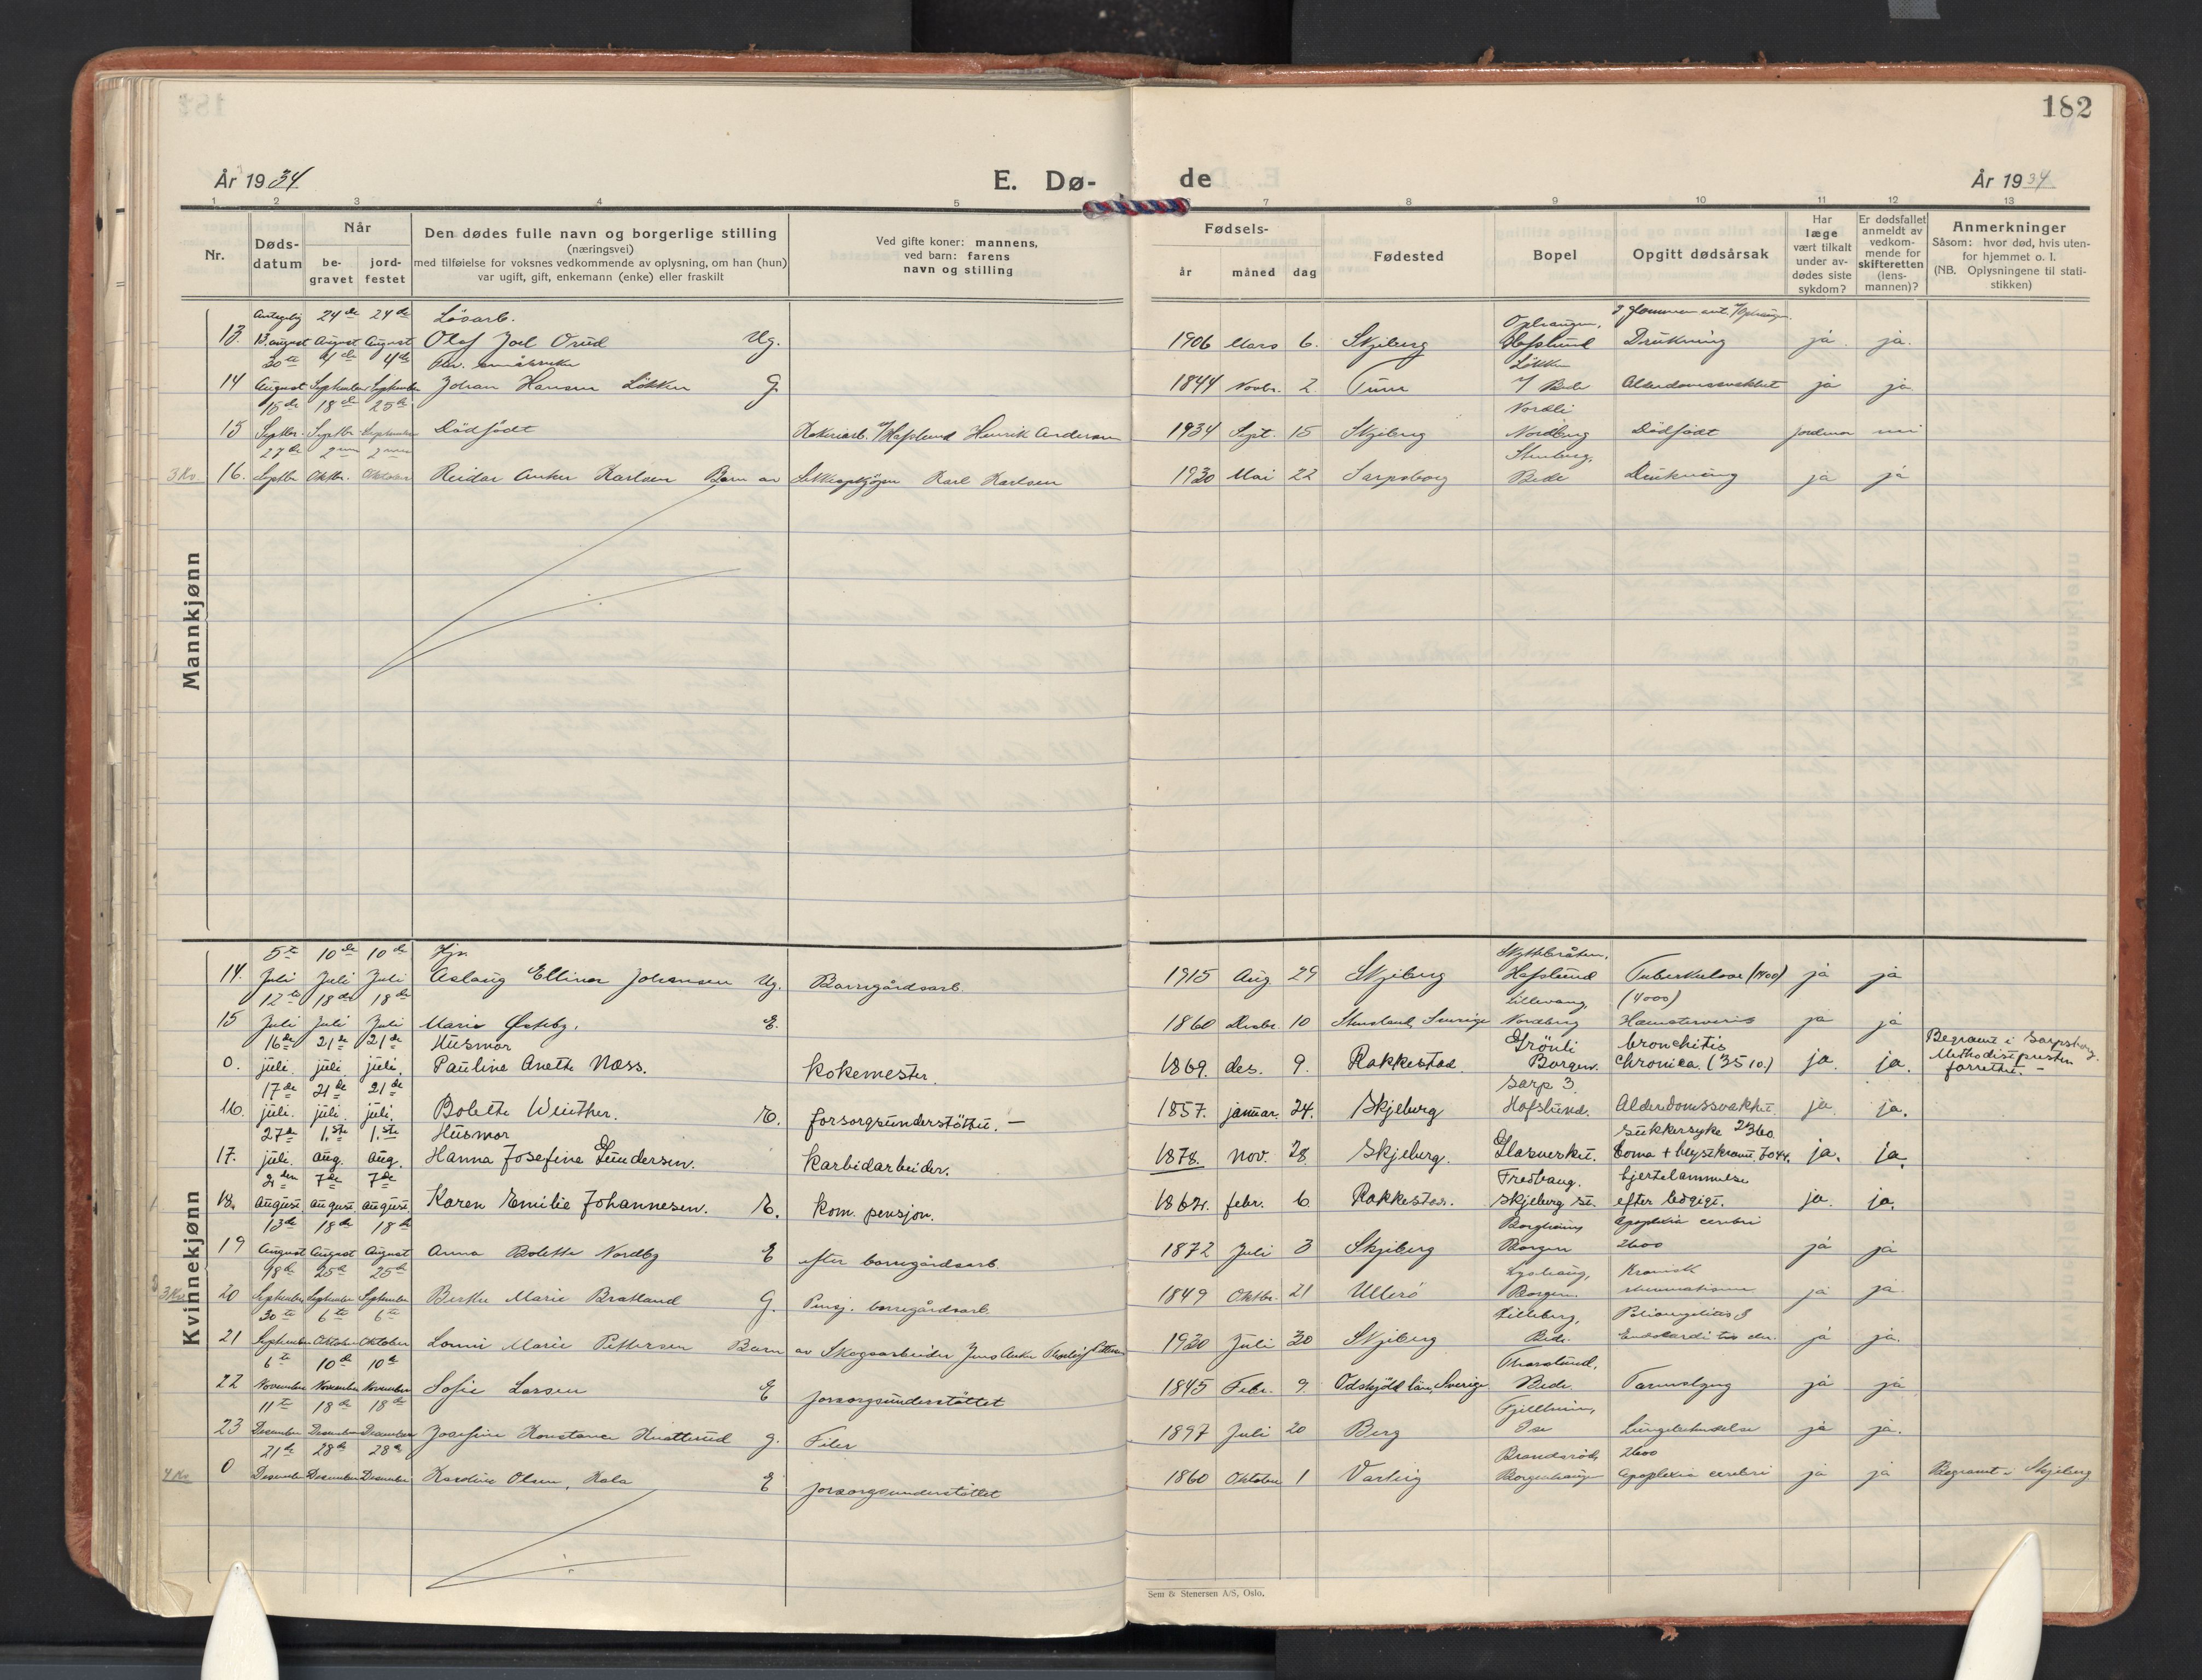 182
År 1934
E. Dø-
de
År 1934
1 2 3 4 5 7 8 9 10 11 12 13
Nr.
Døds-
datum
Når
be-
gravet
jord-
festet
Den dødes fulle navn og borgerlige stilling
(næringsvei)
med tilføielse for voksnes vedkommende av oplysning, om han (hun)
var ugift, gift, enkemann (enke) eller fraskilt
Ved gifte koner: mannens,
ved barn: farens
navn og stilling
Fødsels-
år måned dag
Fødested
Bopel
Opgitt dødsårsak
Har
læge
vært tilkalt
under av-
dødes siste
sykdom?
Er dødsfallet
anmeldt av
vedkom-
mende for
skifteretten
(lens-
mannen)?
Anmerkninger
Såsom: hvor død, hvis uten-
for hjemmet o. l.
(NB. Oplysningene til stati-
stikken)
Mannkjønn
Antagelig 24de 24de Løsarb.
13. 13. august August August Olaf Joel Orud Ug. 1906 Mars 6. Skjeberg Hafslund Drukning ja. ja.
30te 4de 4de småbruker Løkken
14 August September September Johan Hansen Løkken G. 1844 Novbr. 2 Tune Bede Alderdomssvakhet ja ja
15de 18de 25de Nordli
15 Septbr. Septbr. September Dødfødt Hafslund Henrik Andersen 1934 Sept. 15 Skjeberg Nordberg Dødfødt Jordmor nei
27de 2nen 2nen Stenberg,
3 Kv. 16. Septbr Oktbr. Oktober Reidar Anker Karlsen Barn av Karl Karlsen 1930 Mai 22 Sarpsborg Bede Drukning ja ja
Kvinnekjønn
5te 10de 10de Hjp.
14. Juli Juli Juli Aslaug Ellinor Johansen Ug. Borregårdsarb. 1915 Aug 29 Skjeberg Hafslund Tuberkulose (1400) ja ja
12te 18de 18de Lillevang, (4000)
15 Juli Juli Juli Marie Østby. E. 1860 Desbr. 10 Sverige Nordberg ja ja
16de 21de 21de Husmor Grönli bronchitis Begravet i Sarpsborg.
0. juli. juli. juli. Pauline Anette Næss. kokemester. 1869. des. 9. Rakkestad. Borgen. chronica. (3510.) ja. ja. Methodistpresten forrettet. –
17de 21de 21de Sarp 3
16. juli. juli. juli. Bolette Winther. E. forsorgsunderstöttet. – 1857. januar. 24. Skjeberg Hafslund. Alderdomssvakhet. ja. ja.
27de 1.ste 1.ste Husmor sukkersyke 2360.
17. juli. aug. aug. Hanna Josefine Gundersen. karbidarbeider. 1878. nov. 28. Skjeberg. Glasverket. ja. ja.
2den 7de 7de Fredhaug. hjertelammelse
18. august. august. august. Karen Emilie Johannesen. E. kom. pensjon. febr. 6. Rakkestad. Skjeberg st. ja. ja.
13de 18de 18de Borgheim, apoplexia cerebri
19 August August August Anna Bolette Nordby E efter borregårdsarb. 1872 Juli 3 Skjeberg Borgen 2600 ja ja
18de 25de 25de Kronisk
3 Kv. 20 September September September Marie Bratland G. Pensj. borregårdsarb. 1849 Oktbr. 21 Ullerø Borgen. rheumatisme ja ja.
30te 6te 6te Lilleberg,
21 September Oktober Oktober Marie Pettersen Barn av Skogsarbeider Jens Anker Pettersen 1930 Juli 30 Skjeberg Bede. ja ja.
6te 10de 10de
22 November November November Sofie Larsen E forsorgsunderstöttet 1845 Febr. 9. Sverige Bede. Tarmslyng ja ja
11te 18de 18de Fjellheim,
23 Desember Desember Desember Josefine Konstance Knatterud g. Filer 1897 Juli 20 Berg Ise Lungebetendelse ja ja.
21de 28de 28de 2600
4 Kv. 0 Desember Desember Desember Karoline Olsen, Kala E forsorgsunderstöttet 1860 Oktober 1 Varteig apoplexia cerebri ja ja Begravet i Skjeberg
Sem & Stenersen A/S, Oslo.